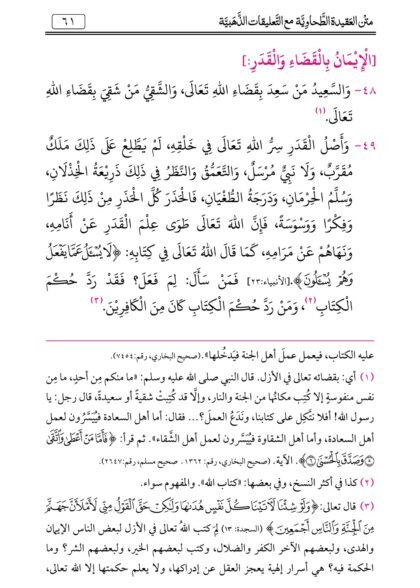 متن العقيدة الطحاوية مع التعليقات الذهبية
٦١
[الْإِيْمَانُ بِالْقَضَاءِ وَالْقَدَرِ:]
٤٨- وَالسَّعِيدُ مَنْ سَعِدَ بِقَضَاءِ اللهِ تَعَالَى، وَالشَّقِيُّ مَنْ شَقِيَ بِقَضَاءِ اللهِ
تَعَالَى.(١)
٤٩- وَأَصْلُ الْقَدَرِ سِرُّ اللهِ تَعَالَى فِي خَلْقِهِ، لَمْ يَطَّلِعْ عَلَى ذَلِكَ مَلَكٌ
مُقَرَّبٌ، وَلَا نَبِيٌّ مُرْسَلٌ، وَالتَّعَمُّقُ وَالنَّظَرُ فِي ذَلِكَ ذَرِيْعَةُ الْخِذْلَانِ،
وَسُلَّمُ الْحِرْمَانِ، وَدَرَجَةُ الطُّغْيَانِ، فَالْحَذَرَ كُلَّ الْحَذَرِ مِنْ ذَلِكَ نَظَرًا
وَفِكْرًا وَوَسْوَسَةً، فَإِنَّ اللهَ تَعَالَى طَوَى عِلْمَ الْقَدَرِ عَنْ أَنَامِهِ،
وَنَهَاهُمْ عَنْ مَرَامِهِ، كَمَا قَالَ اللهُ تَعَالَى فِي كِتَابِهِ: ﴿لَا يُسْـَٔلُ عَمَّا يَفْعَلُ
وَهُمْ يُسْـَٔلُونَ﴾.[الأنبياء:٢٣] فَمَنْ سَأَلَ: لِمَ فَعَلَ؟ فَقَدْ رَدَّ حُكْمَ
الْكِتَابِ(٢)، وَمَنْ رَدَّ حُكْمَ الْكِتَابِ كَانَ مِنَ الْكَافِرِيْنَ.(٣)
عليه الكتاب، فيعمل عملَ أهل الجنة فيَدخُلها». (صحيح البخاري، رقم:٧٤٥٤).
(١) أي: بقضائه تعالى في الأزل. قال النبي صلى الله عليه وسلم: «ما منكم مِن أحدٍ، ما مِن
نفس منفوسةٍ إلا كُتِب مكانُها من الجنة والنار، وإلَّا قد كُتِبتْ شقيةً أو سعيدةً، قال رجل: يا
رسول الله! أفلا نتَّكِل على كتابنا، ونَدَعُ العمل...؟ فقال: أما أهل السعادة فيُيَسَّرُون لعمل
أهل السعادة، وأما أهل الشقاوة فيُيَسَّرون لعمل أهل الشَّقاء». ثم قرأ: ﴿فَأَمَّا مَنْ أَعْطَى وَاتَّقَى
۝ وَصَدَّقَ بِالْحُسْنَى ۝﴾. الآية. (صحيح البخاري، رقم: ١٣٦٢. صحيح مسلم، رقم:٢٦٤٧).
(٢) كذا في أكثر النسخ، وفي بعضها: «كتاب الله». والمفهوم سواء.
(٣) قال تعالى: ﴿وَلَوْ شِئْنَا لَآتَيْنَا كُلَّ نَفْسٍ هُدَاهَا وَلَكِنْ حَقَّ الْقَوْلُ مِنِّي لَأَمْلَأَنَّ جَهَنَّمَ
مِنَ الْجِنَّةِ وَالنَّاسِ أَجْمَعِينَ﴾ (السجدة: ١٣) لِمَ كتب اللهُ تعالى في الأزل لبعض الناس الإيمان
والهدى، ولبعضهم الآخر الكفر والضلال، وكتب لبعضهم الخير، ولبعضهم الشر؟ وما
الحكمة فيه؟ هي أسرار إلهية يعجز العقل عن إدراكها، ولا يعلم حكمتها إلا الله تعالى،